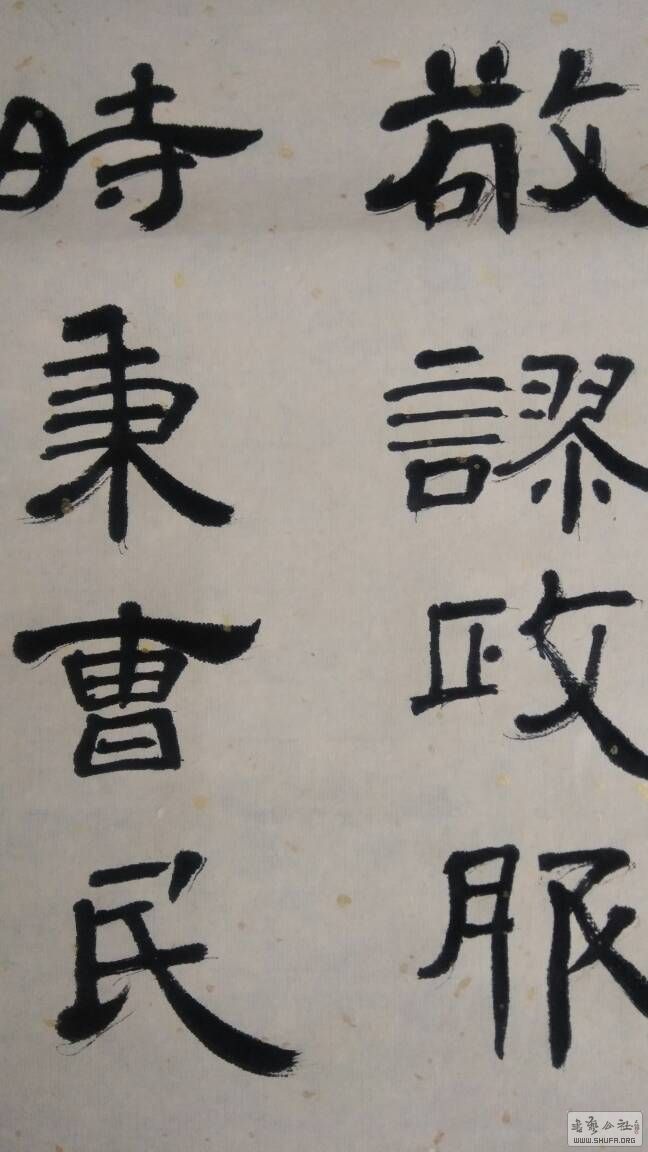 敬謬政服
時秉曹民
书艺公社
WWW.SHUFA.ORG